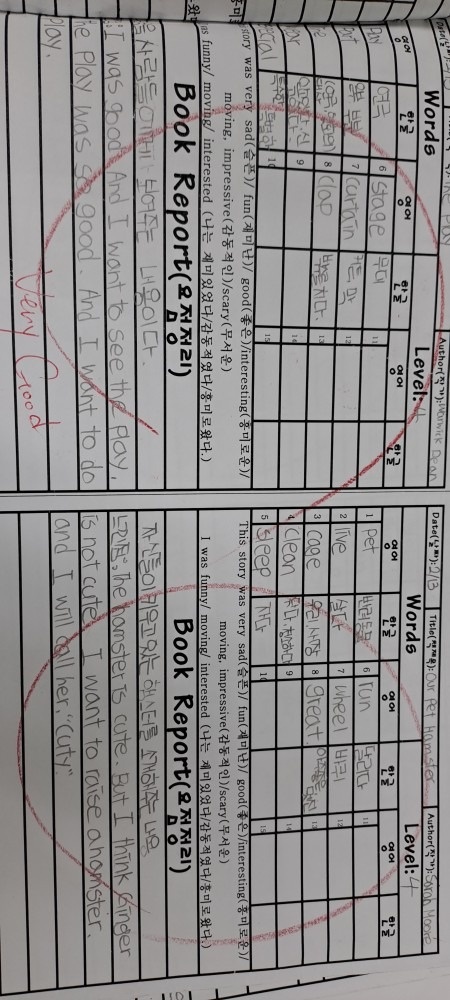 Author(작가): Warwick Dean
Words
Level: 4
영어 한글 영어 한글 영어 한글
연극 6 stage 무대 11
7 curtain 커튼, 막 12
8 clap 박수를 치다. 13
9 14
10 15
story was very sad(슬픈)/ fun(재미난)/ good(좋은)/interesting(흥미로운)/
moving, impressive(감동적인)/scary(무서운)
as funny/ moving/ interested (나는 재미있었다/감동적였다/흥미로왔다.)
Book Report(요점정리)
사람들에게 보여주는 내용이다.
I was good. And I want to see the play.
play was so good. And I want to do
play.
Very Good
Date(날짜): 2/13 Title(책제목): Our Pet Hamster Author(작가): Sarah
Words
Level: 4
영어 한글 영어 한글 영어 한글
1 pet 반려동물 6 run 달리다 11
2 live 살다 7 wheel 바퀴 12
3 cage 우리, 새장 8 great 13
4 clean 9 14
5 sleep 자다 10 15
This story was very sad(슬픈)/ fun(재미난)/ good(좋은)/interesting(흥미로운)/
moving, impressive(감동적인)/scary(무서운)
I was funny/ moving/ interested (나는 재미있었다/감동적였다/흥미로왔다.)
Book Report(요점정리)
자신들이 키우고 있는 햄스터를 소개해주는 내용
느낀점; The hamster is cute. But I think Ginder
is not cute. I want to raise a hamster.
and I will call her. "Cuty"